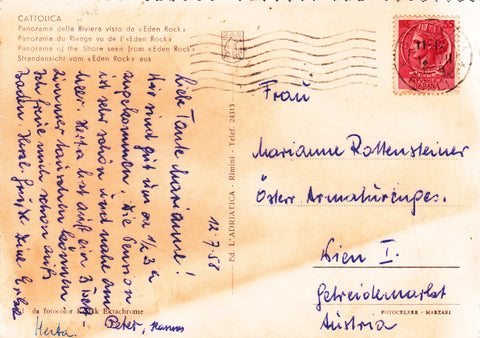 CATTOLICA
Panorama della Riviera visto da «Eden Rock»
Panorama du Rivage vu de l'«Eden Rock»
Panorama of the Shore seen from «Eden Rock»
Strandansicht vom «Eden Rock» aus
12.7.58
Liebe Tante Marianne!
Wir sind gut um ca 1/2 3 h
angekommen. Die Pension
ist sehr schön und nahe am
Meer. Herta hat auf ein 3 Bett-
zimmer tauschen können
Ich freue mich schon aufs
Baden. Viele Grüße Deine
Peter,
Herta
Ed. L'ADRIATICA - Rimini - Telef. 24313
da fotocolor Kodak Ektachrome
Frau
Marianne Rottensteiner
Österr. Armaturenges.
Wien I.
Getreidemarkt
Austria
FOTOCELERE - MARZARI